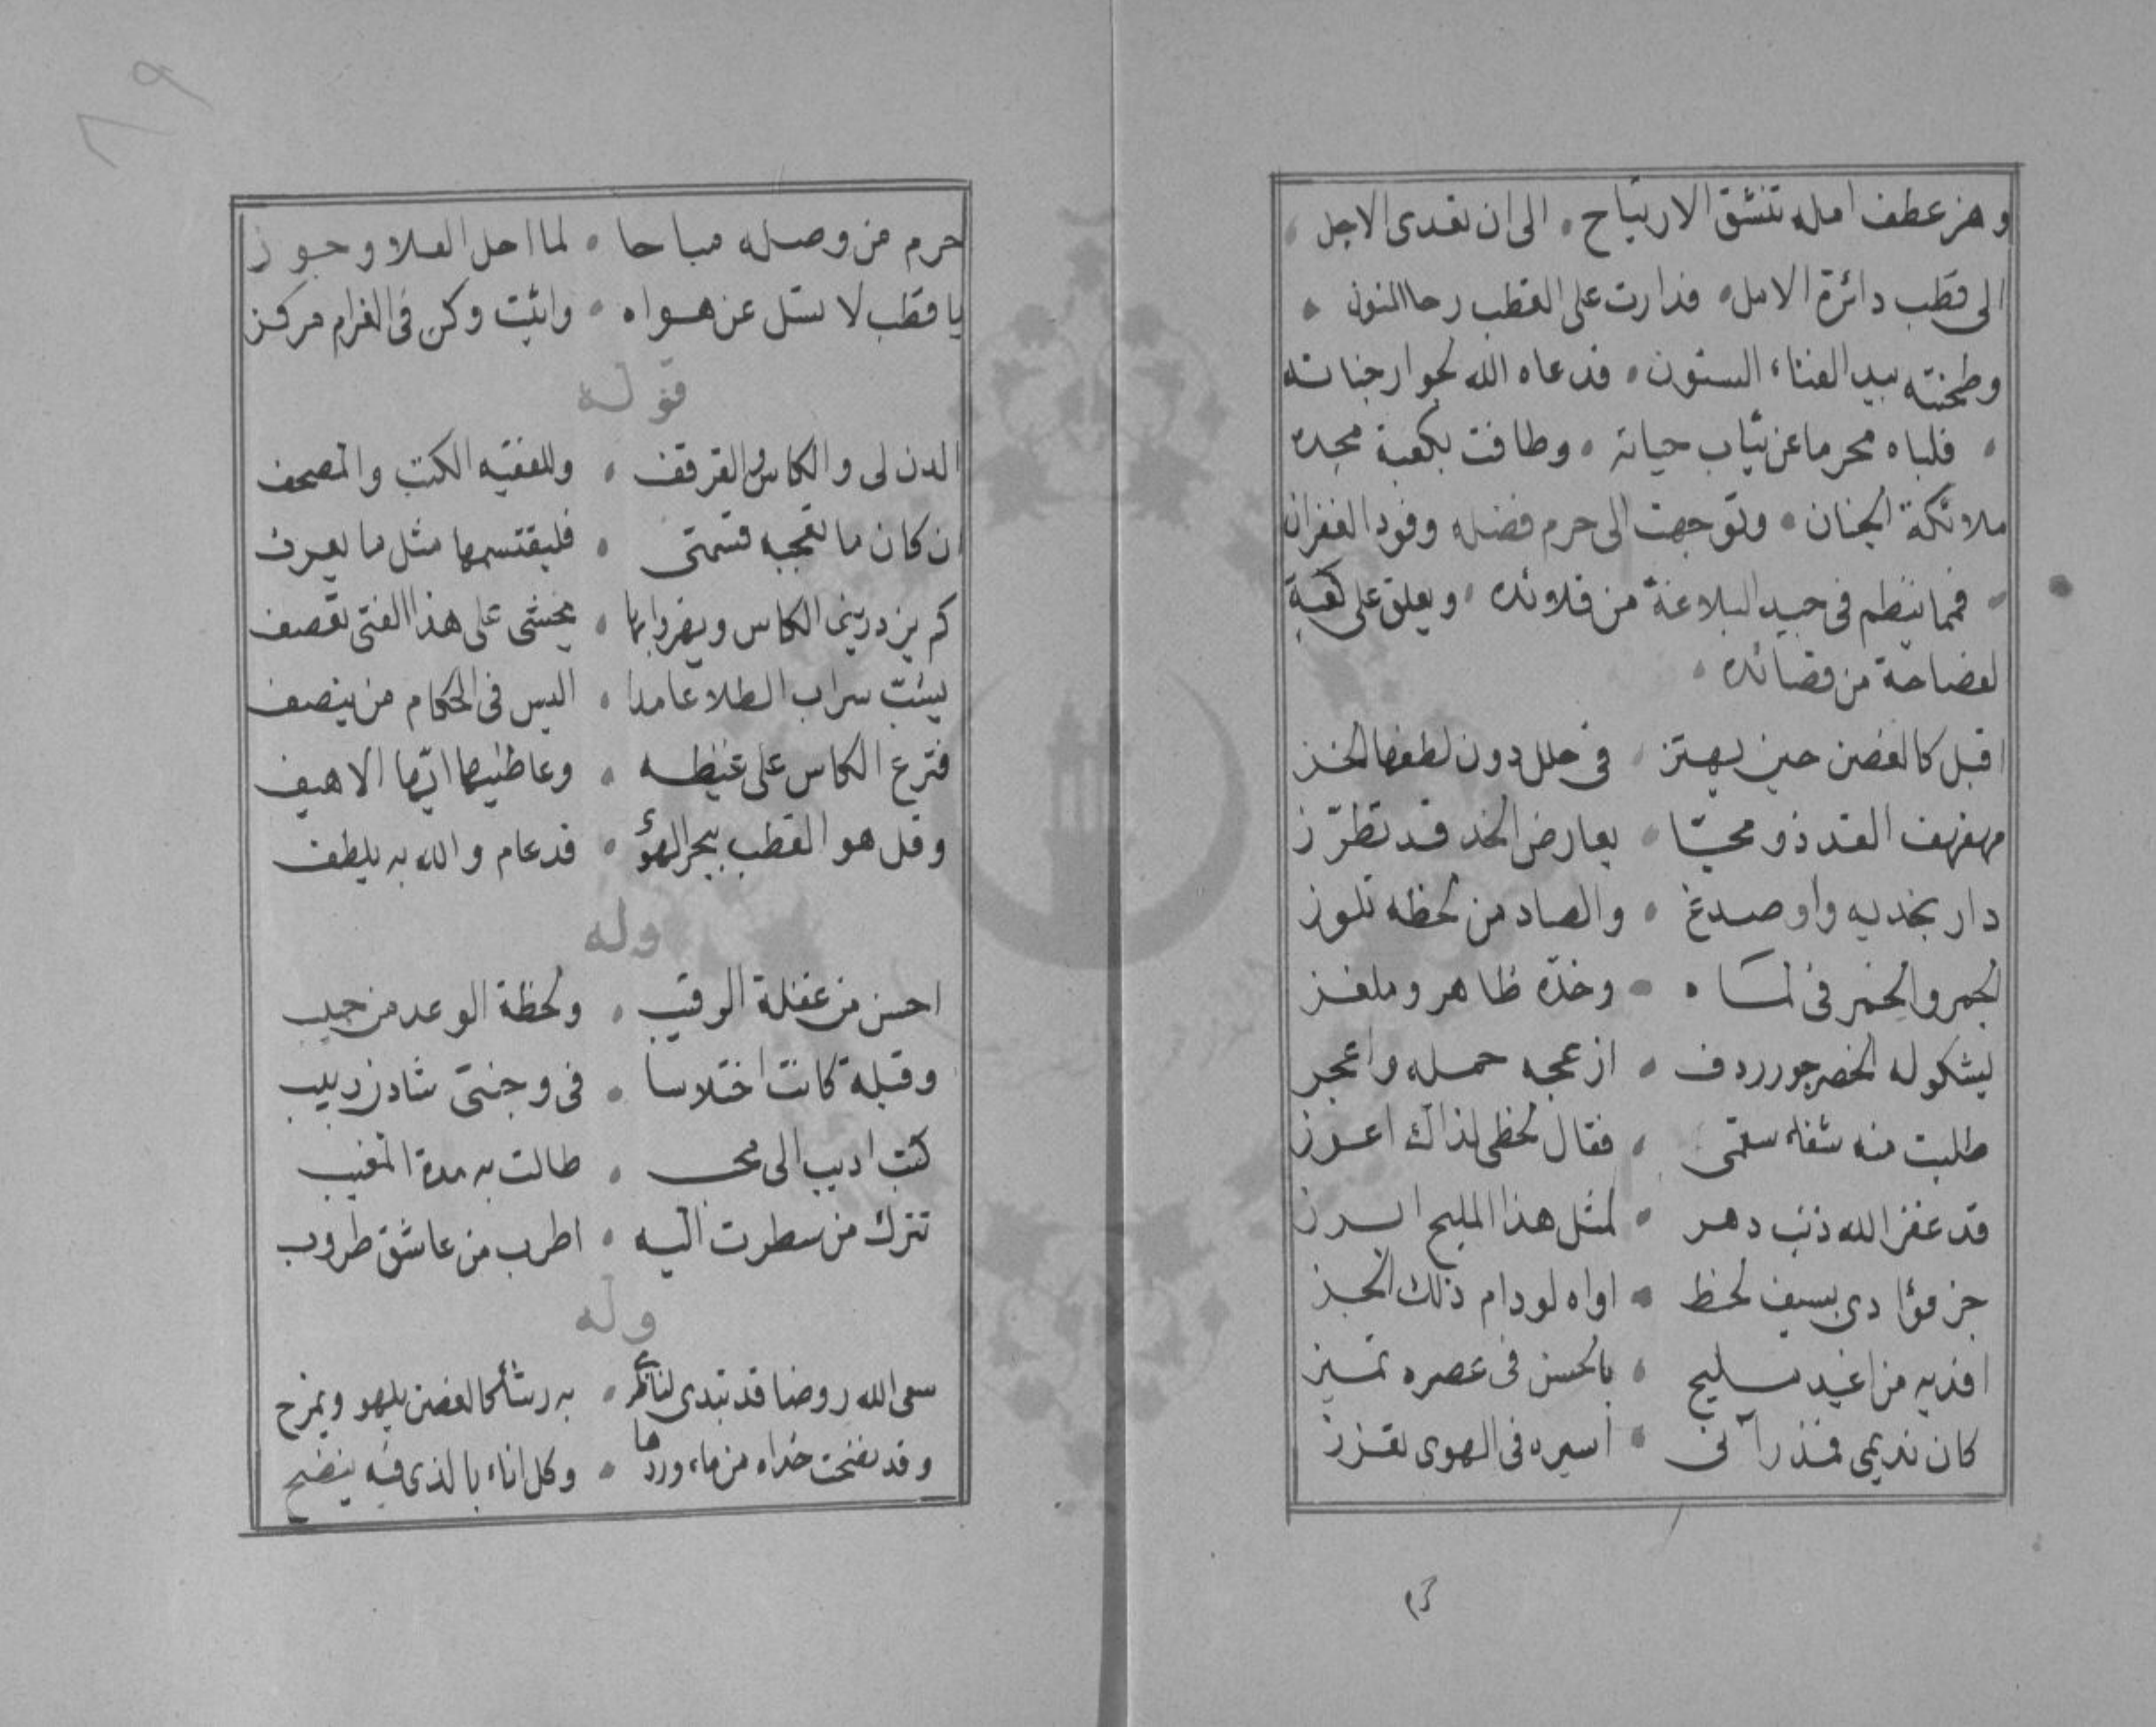 وهز عطف امله تنشق الارتياح ، الى ان تعدى الاجل
الى قطب دائرة الامل ، فدارت على القطب رحا المنون ،
وطحنته بيد الفناء السنون ، فدعاه الله لجوار جناته
، فلباه محرما عن ثياب حياته ، وطافت بكعبة مجده
ملائكة الجنان ، وتوجهت الى حرم فضله وفود الغفران
، فمما ينظم فى جيد البلاغة من قلائده ، ويعلق على كعبة
لفصاحة من قصائده ،
اقبل كالغصن حين يهتز ، فى حلل دون لطفها الخز
مهفهف القد ذو محيّا ، بعارض الخد قد تطرّز
دار بخديه واو صدغ ، والصاد من لحظه تلوز
الجمر والخمر فى لماه ، وخده ظاهر وملغز
يشكو له الخصر جور ردف ، ازعجه حمله واعجز
طلبت منه شفاء سقمى ، فقال لحظى لذاك اعوز
قد غفر الله ذنب دهر ، لمثل هذا المليح ابرز
جز فؤادى بسيف لحظ ، اواه لو دام ذلك الجز
افديه من اغيد مليح ، بالحسن فى عصره تميز
كان نديمى فمذ رآنى ، اسيره فى الهوى تعزز
حرم من وصله مباحا ، لما احل القلا وجوز
يا قطب لا تسل عن هواه ، واثبت وكن فى الغرام مركز
قوله
الدن لى والكاس والقرقف ، وللفقيه الكتب والمصحف
ن كان ما تعجبه قسمتى ، فليقتسمها مثل ما يعرف
كم يزدرينى الكاس ، يخشى على هذا الفتى تقصف
سراب الطلا عامدا ، اليس فى الحكام من ينصف
فترع الكاس على غيظه ، وعاطنيها ايّها الاهيف
وقل هو القطب ببحر الهوى ، قد عام والله به يلطف
وله
احسن من غفلة الرقيب ، ولحظة الوعد من حبيب
وقبلة كانت اختلاسا ، فى وجنتى شادن ربيب
كتب اديب الى محب ، طالت به مدة المغيب
تترك من سطرت اليه ، اطرب من عاشق طروب
وله
سقى الله روضا قد تبدى لناظر ، به رشأ كالغصن يلهو ويمرح
وقد نضحت خداه من ماء وردها ، وكل اناء بالذى فيه ينضح